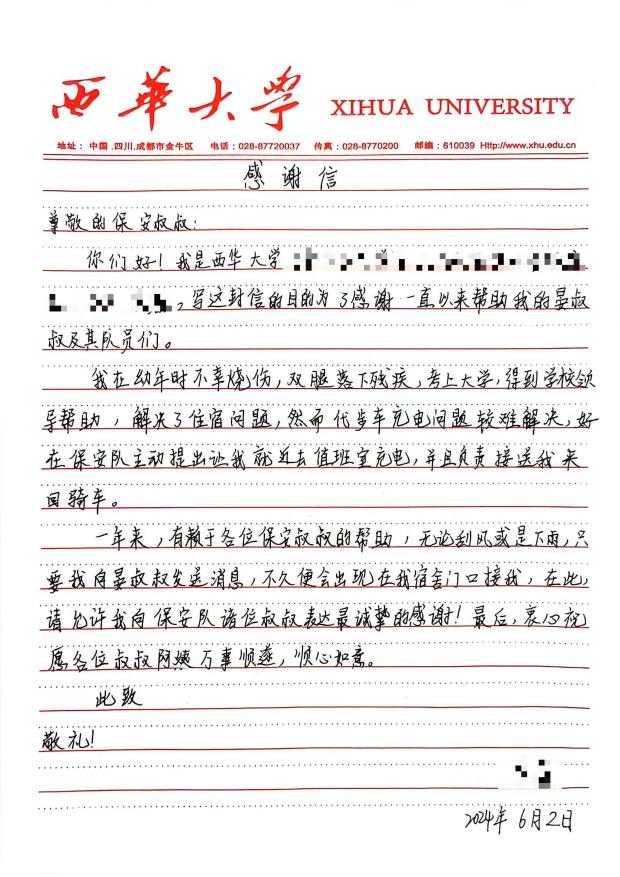 西华大学 XIHUA UNIVERSITY
地址：中国.四川.成都市金牛区 电话：028-87720037 传真：028-8770200 邮编：610039 Http://www.xhu.edu.cn
感谢信
尊敬的保安叔叔：
你们好！我是西华大学
，写这封信的目的为了感谢一直以来帮助我的晏叔
叔及其队员们。
我在幼年时不幸烧伤，双腿落下残疾，考上大学，得到学校领
导帮助，解决了住宿问题，然而代步车充电问题较难解决，好
在保安队主动提出让我就近去值班室充电，并且负责接送我来
回骑车。
一年来，有赖于各位保安叔叔的帮助，无论刮风或是下雨，只
要我向晏叔叔发送消息，不久便会出现在我宿舍门口接我，在此，
请允许我向保安队诸位叔叔表达最诚挚的感谢！最后，衷心祝
愿各位叔叔阿姨万事顺遂，顺心如意。
此致
敬礼！
2024年6月2日